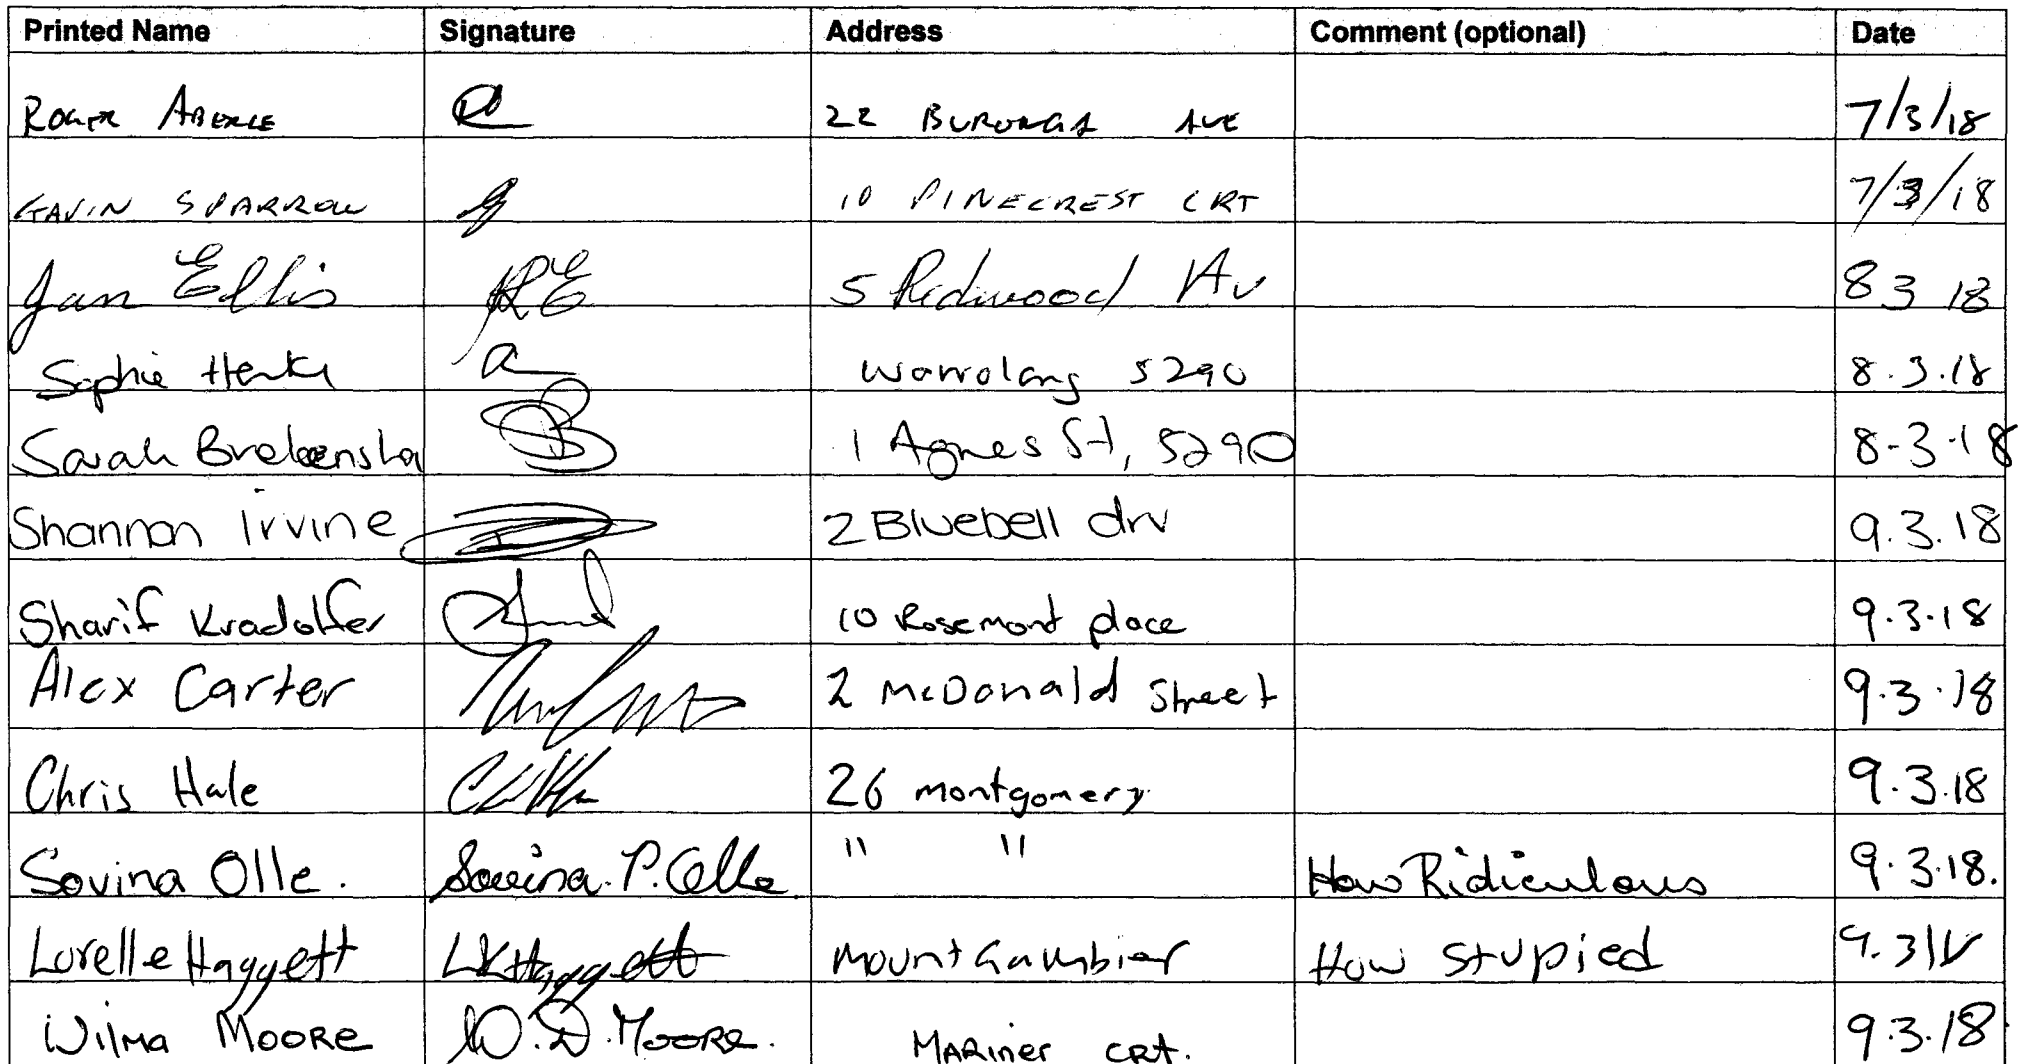 Printed Name Signature Address Comment (optional) Date
Roger Aberle 22 Buronga Ave 7/3/18
Gavin Sparrow 10 Pinecrest Crt 7/3/18
Jan Ellis 5 Redwood Av 8 3 18
Sophie 5290 8.3.18
Sarah 1 Agnes St, 5290 8-3-18
Shannon Irvine 2 Bluebell drv 9.3.18
Sharif Kradolfer 10 Rosemont place 9.3.18
Alex Carter 2 McDonald Street 9.3.18
Chris Hale 26 Montgomery 9.3.18
Sovina Olle. Sovina.P.Olle " " How Ridiculous 9.3.18.
Lorelle Haggett LKHaggett Mount Gambier How Stupied 9.3 18
Wilma Moore W.D.Moore. Mariner crt. 9.3.18